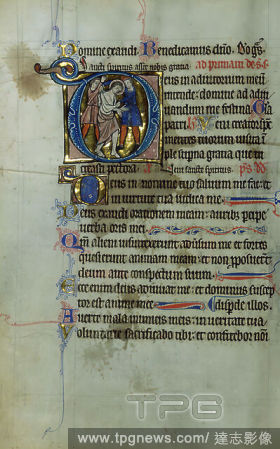 Domine exaudi. Benedicamus dno. Do gs.
Sancti spiritus assit nobis gratia ad primam de s.s.
Deus in adiutorium meu
intende: domine ad adiu
uandum me festina Gla
patri Veni creator spc
mentes tuorum uisita i
ple superna gratia que tu
creasti pectora. sancte spiritus. ps. dd.
Deus in nomine tuo saluum me fac: et
in uirtute tua iudica me
Deus exaudi orationem meam: auribus pcipe
uerba oris mei.
Qm alieni insurrexerunt aduersum me et fortes
quesierunt animam meam: et non pposuerut
deum ante conspectum suum.
Ecce enim deus adiuuat me: et dominus suscep
tor est anime mee Disperde illos.
Auerte mala inimicis meis: in ueritate tua
Voluntarie sacrificabo tibi: et confitebor noi
TPG
www.tpgnews.com/ 達志影像